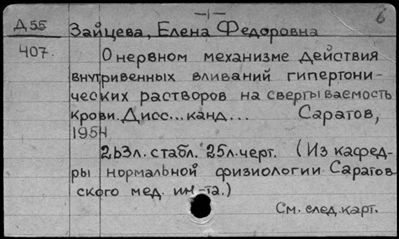 -1-
6
Д55
Зайцева, Елена Федоровна
407.
О нервном механизме действия
внутривенных вливаний гипертони-
ческих растворов на свертываемость
крови. Дисс... канд... Саратов,
1954
263л. стабл. 25л.черт. (Из кафед-
ры нормальной физиологии Саратов
ского мед. ин-та.)
См. след.карт.